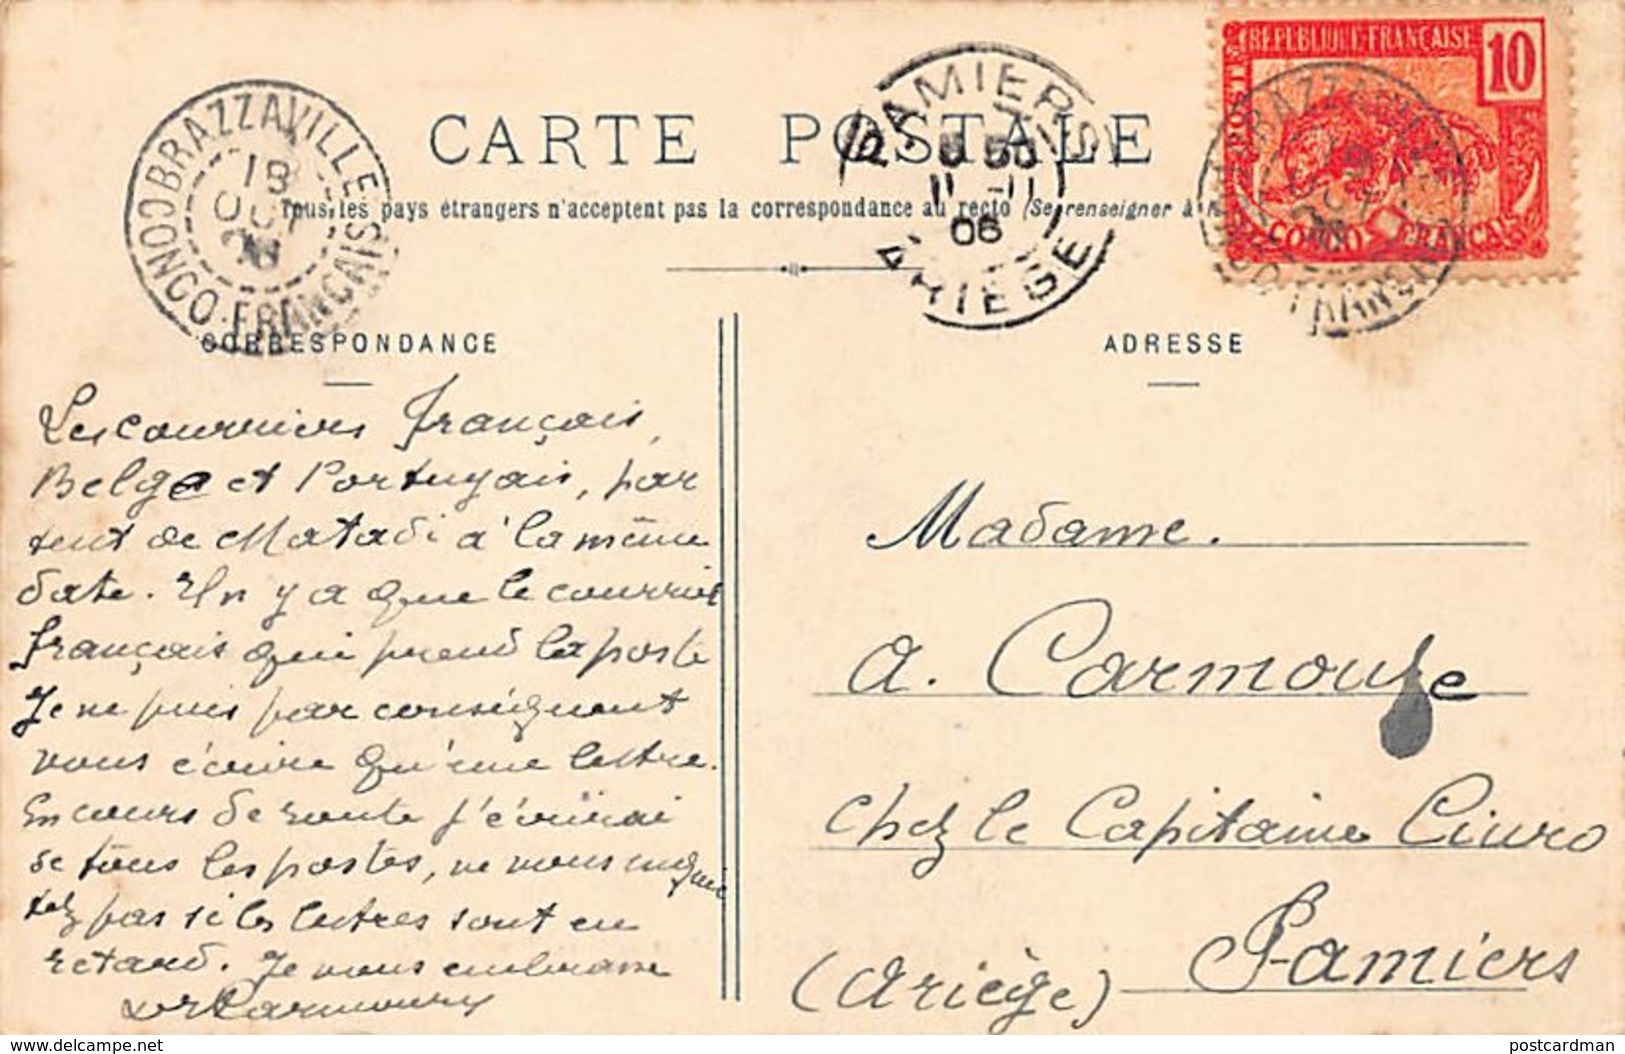 BRAZZAVILLE
18
OCT
06
CONGO-FRANCAIS
CARTE POSTALE
PAMIERS
5 50
11 -11
06
ARIÈGE
REPUBLIQUE·FRANÇAISE
10
POSTES
CONGO FRANÇAIS
BRAZZAVILLE
Tous les pays étrangers n'acceptent pas la correspondance au recto (Se renseigner à
CORRESPONDANCE
ADRESSE
Les courriers français,
Belge et Portugais, par
tent de Matadi à la même
date. Il n y a que le courrier
français qui prend la poste
Je ne puis par conséquent
vous écrire qu'une lettre.
En cours de route j'écrirai
de tous les postes, ne vous inquié
tez pas si les lettres sont en
retard. Je vous embrasse
Madame.
A. Carmouze
chez le Capitaine Ciuro
Pamiers
(Ariège)
www.delcampe.net
postcardman